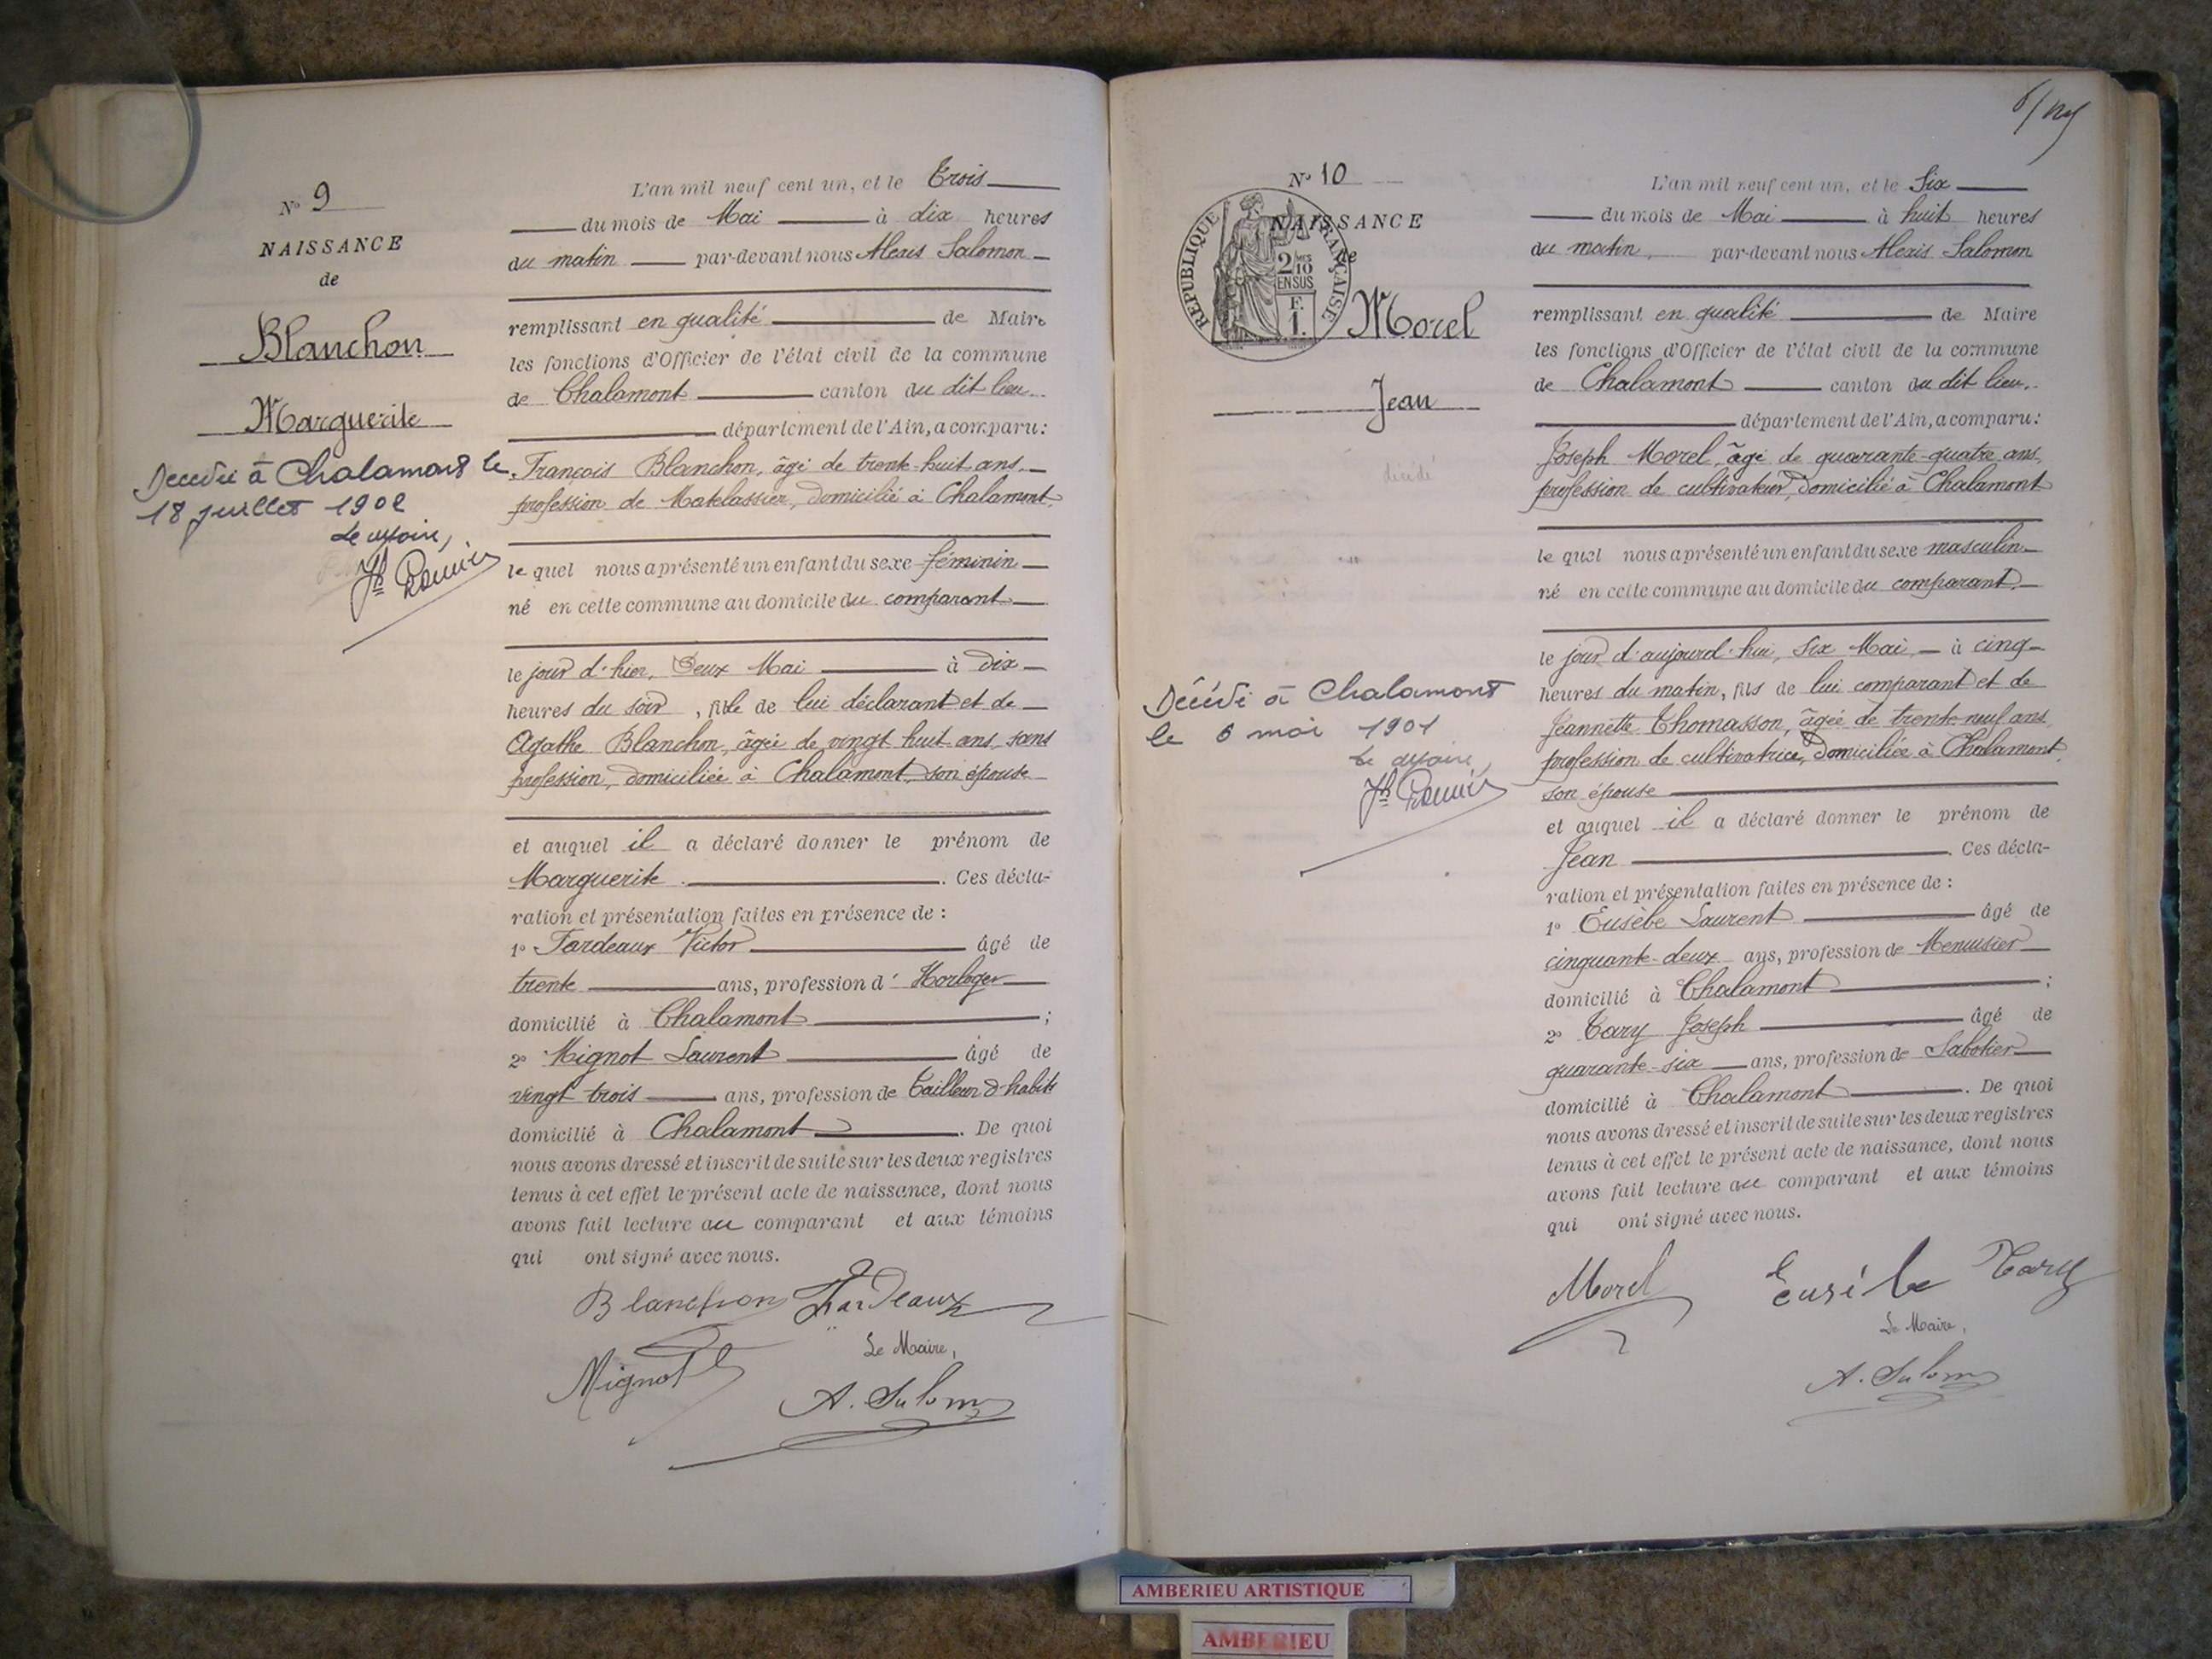 N° 9
NAISSANCE
de
Blanchon
Marguerite
Décédée à Chalamont le
18 juillet 1902
Le Maire,
L'an mil neuf cent un, et le Trois
du mois de Mai à dix heures
du matin par-devant nous Alexis Salomon
remplissant en qualité de Maire
les fonctions d'Officier de l'état civil de la commune
de Chalamont canton du dit lieu.
département de l'Ain, a comparu:
François Blanchon, âgé de trente-huit ans,
profession de Matelassier, domicilié à Chalamont,
le quel nous a présenté un enfant du sexe féminin
né en cette commune au domicile du comparant
le jour d'hier, Deux Mai à dix
heures du soir, fille de lui déclarant et de
Agathe Blanchon, âgée de vingt huit ans, sans
profession, domiciliée à Chalamont, son épouse
et auquel il a déclaré donner le prénom de
Marguerite. Ces décla-
ration et présentation faites en présence de :
1° Tardeaux Victor âgé de
trente ans, profession d' Horloger
domicilié à Chalamont ;
2° Mignot Laurent âgé de
vingt trois ans, profession de Tailleur d'habits
domicilié à Chalamont. De quoi
nous avons dressé et inscrit de suite sur les deux registres
tenus à cet effet le présent acte de naissance, dont nous
avons fait lecture au comparant et aux témoins
qui ont signé avec nous.
Blanchon Tardeaux
Le Maire,
Mignot
A. Salomon
N° 10
NAISSANCE
de
REPUBLIQUE FRANÇAISE
2/10
EN SUS
F.
1.
Morel
Jean
décédé
Décédé à Chalamont
le 6 mai 1901
Le Maire,
L'an mil neuf cent un, et le Six
du mois de Mai à huit heures
du matin, par-devant nous Alexis Salomon
remplissant en qualité de Maire
les fonctions d'Officier de l'état civil de la commune
de Chalamont canton du dit lieu,
département de l'Ain, a comparu:
Joseph Morel, âgé de quarante-quatre ans,
profession de cultivateur, domicilié à Chalamont
le quel nous a présenté un enfant du sexe masculin
né en cette commune au domicile du comparant,
le jour d'aujourd'hui, Six Mai, à cinq
heures du matin, fils de lui comparant et de
Jeannette Thomasson, âgée de trente-neuf ans
profession de cultivatrice, domiciliée à Chalamont,
son épouse
et auquel il a déclaré donner le prénom de
Jean. Ces décla-
ration et présentation faites en présence de :
1° Eusèbe Laurent âgé de
cinquante-deux ans, profession de Menuisier
domicilié à Chalamont ;
2° Tary Joseph âgé de
quarante-six ans, profession de Sabotier
domicilié à Chalamont. De quoi
nous avons dressé et inscrit de suite sur les deux registres
tenus à cet effet le présent acte de naissance, dont nous
avons fait lecture au comparant et aux témoins
qui ont signé avec nous.
Morel Eusèbe Tary
Le Maire,
A. Salomon
AMBERIEU ARTISTIQUE
AMBERIEU